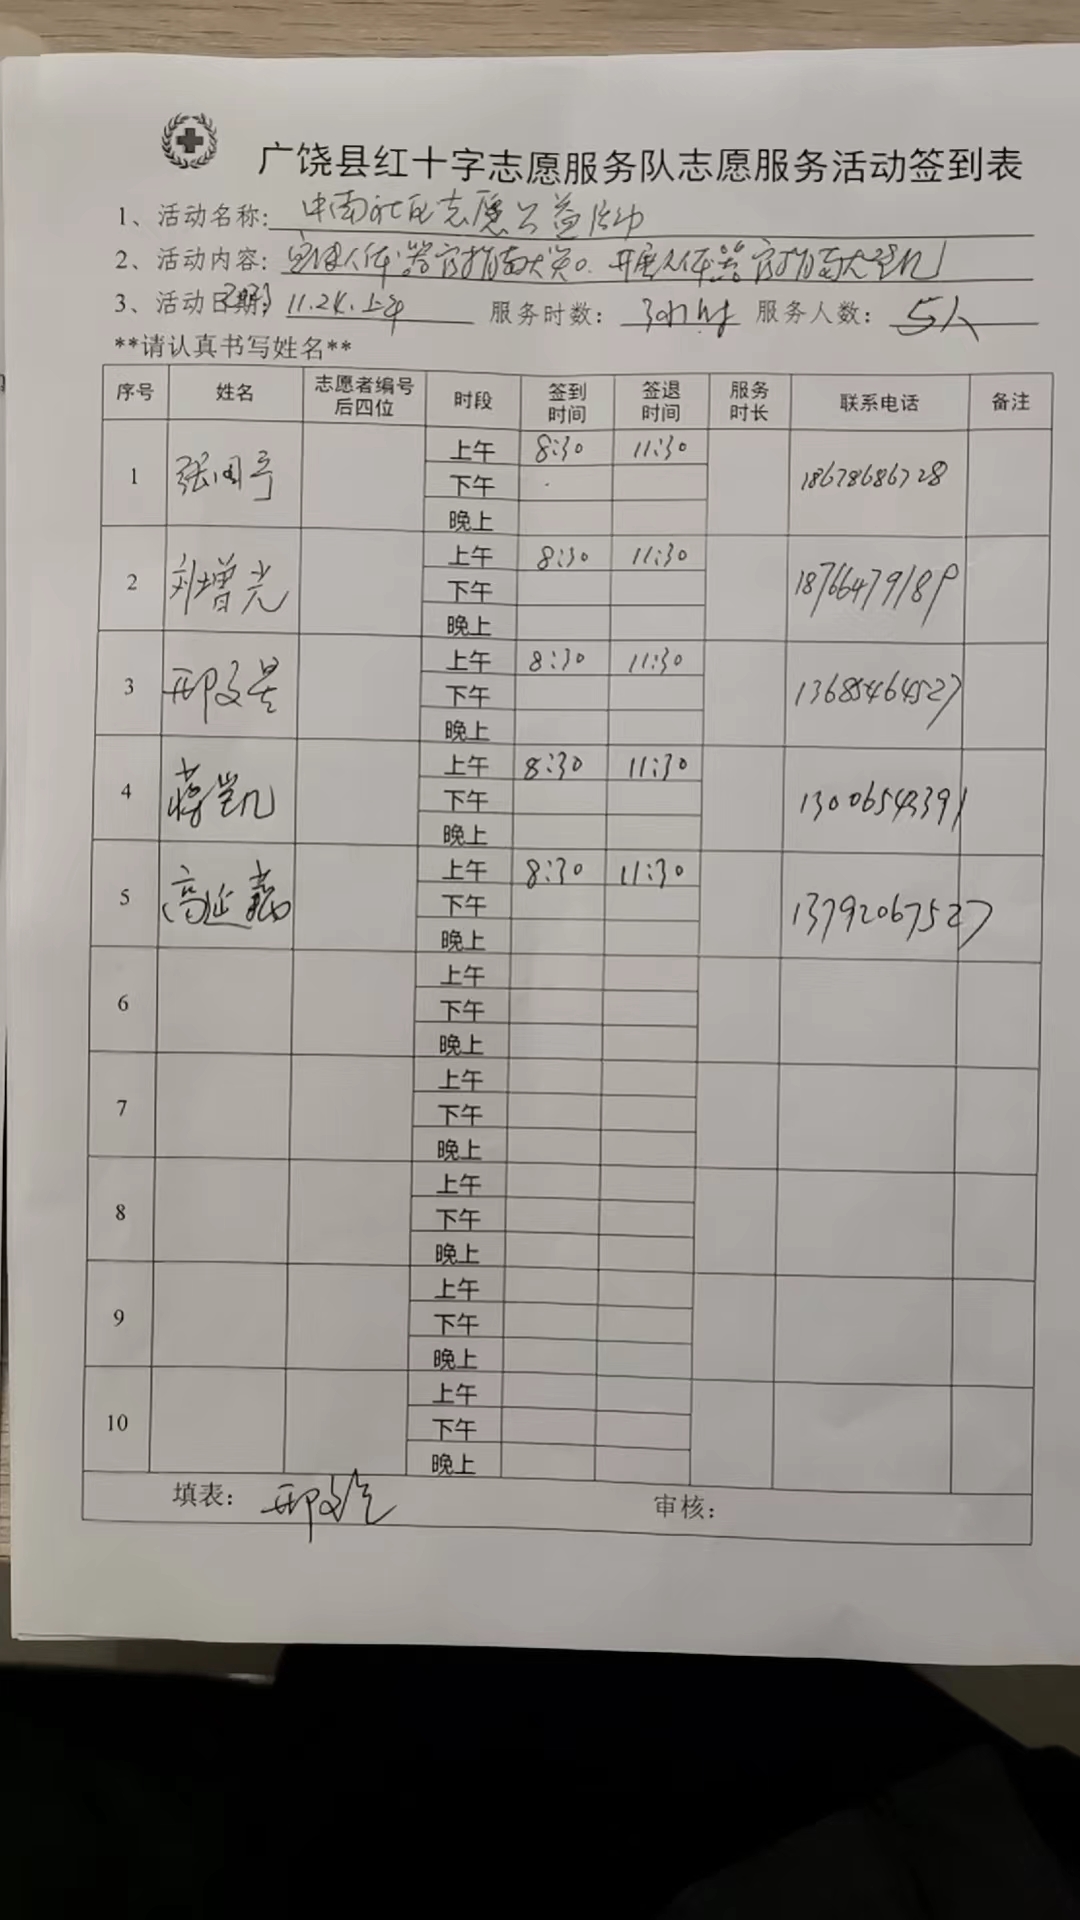 广饶县红十字志愿服务队志愿服务活动签到表
1、活动名称: 中南社区志愿公益活动
2、活动内容: 宣传人体器官捐献 开展人体器官捐献
3、活动日期: 11.24.上午 服务时数: 3小时 服务人数: 5人
**请认真书写姓名**
序号 姓名 志愿者编号后四位 时段 签到时间 签退时间 服务时长 联系电话 备注
1 上午 8:30 11:30 18678686728
下午
晚上
2 刘增光 上午 8:30 11:30 18766479189
下午
晚上
3 邢文昊 上午 8:30 11:30 13685464527
下午
晚上
4 蒋凯 上午 8:30 11:30
下午
晚上
5 高延 上午 8:30 11:30 13792067527
下午
晚上
6 上午
下午
晚上
7 上午
下午
晚上
8 上午
下午
晚上
9 上午
下午
晚上
10 上午
下午
晚上
填表: 邢文 审核: